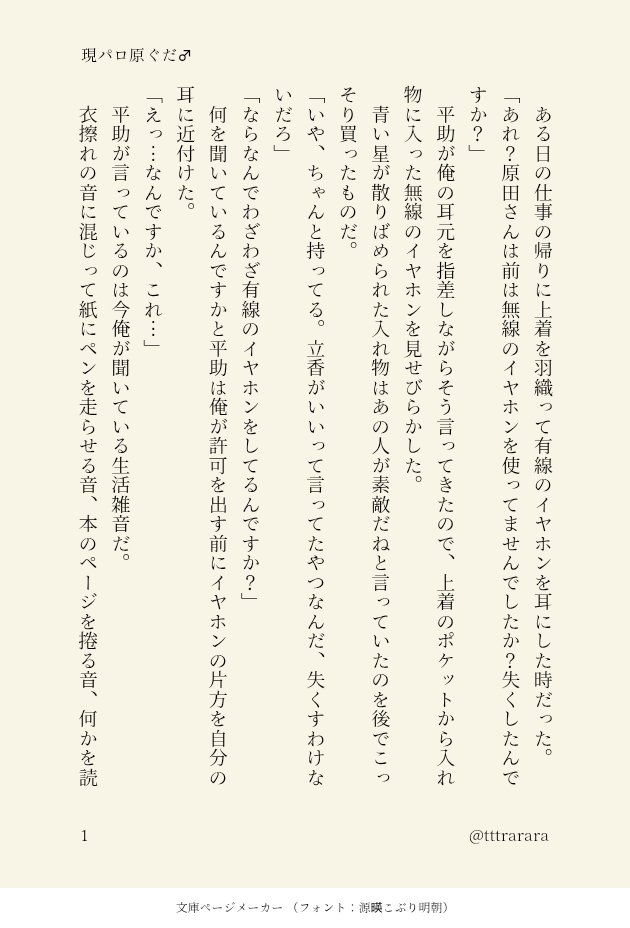 現パロ原ぐだ♂
　ある日の仕事の帰りに上着を羽織って有線のイヤホンを耳にした時だった。
「あれ？原田さんは前は無線のイヤホンを使ってませんでしたか？失くしたんで
すか？」
　平助が俺の耳元を指差しながらそう言ってきたので、上着のポケットから入れ
物に入った無線のイヤホンを見せびらかした。
　青い星が散りばめられた入れ物はあの人が素敵だねと言っていたのを後でこっ
そり買ったものだ。
「いや、ちゃんと持ってる。立香がいいって言ってたやつなんだ、失くすわけな
いだろ」
「ならなんでわざわざ有線のイヤホンをしてるんですか？」
　何を聞いているんですかと平助は俺が許可を出す前にイヤホンの片方を自分の
耳に近付けた。
「えっ…なんですか、これ…」
　平助が言っているのは今俺が聞いている生活雑音だ。
　衣擦れの音に混じって紙にペンを走らせる音、本のページを捲る音、何かを読
1
@tttrarara
文庫ページメーカー （フォント：源暎こぶり明朝）